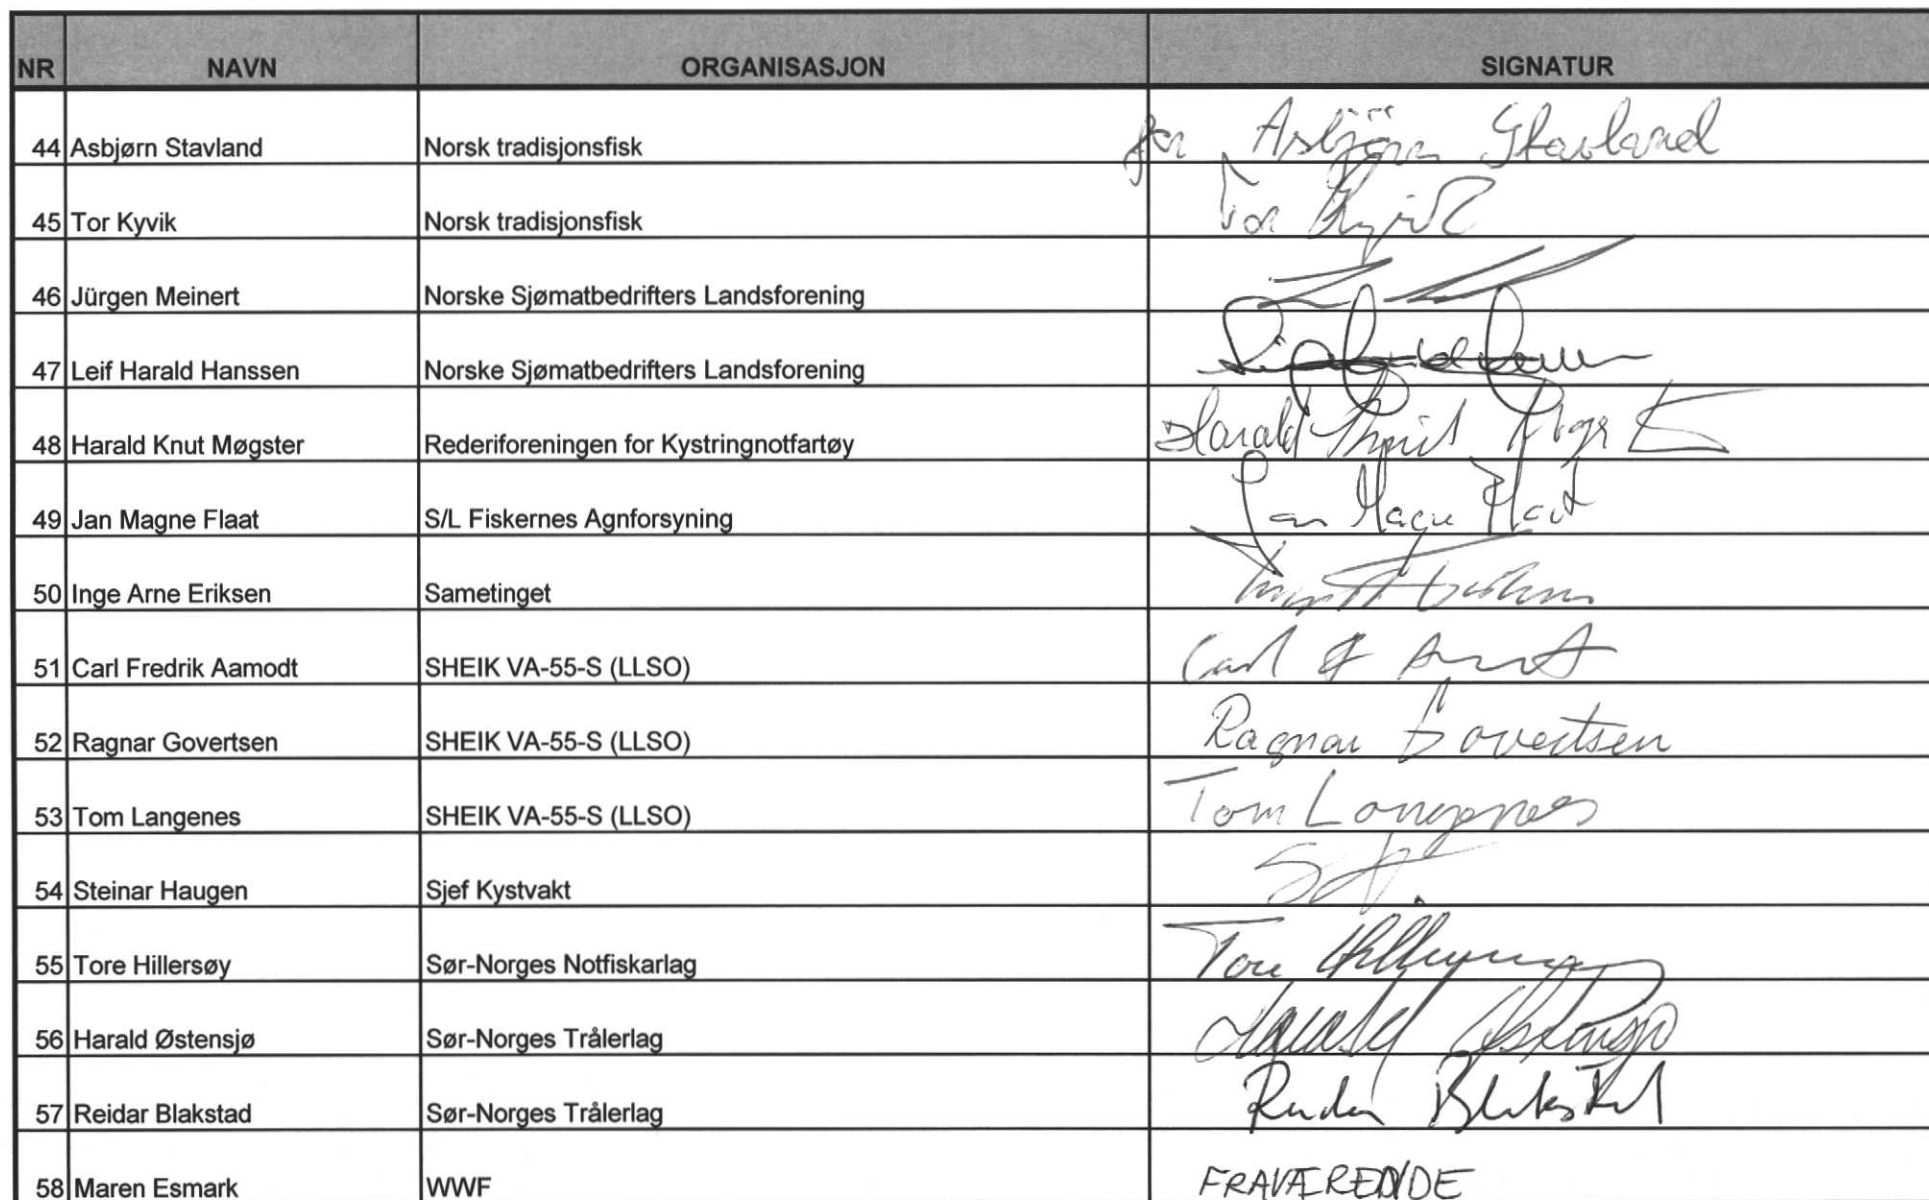 NR NAVN ORGANISASJON SIGNATUR
44 Asbjørn Stavland Norsk tradisjonsfisk for Asbjörn Stavland
45 Tor Kyvik Norsk tradisjonsfisk Tor Kyvik
46 Jürgen Meinert Norske Sjømatbedrifters Landsforening
47 Leif Harald Hanssen Norske Sjømatbedrifters Landsforening
48 Harald Knut Møgster Rederiforeningen for Kystringnotfartøy Harald Knut
49 Jan Magne Flaat S/L Fiskernes Agnforsyning Jan Magne Flaat
50 Inge Arne Eriksen Sametinget
51 Carl Fredrik Aamodt SHEIK VA-55-S (LLSO) Carl F
52 Ragnar Govertsen SHEIK VA-55-S (LLSO) Ragnar Govertsen
53 Tom Langenes SHEIK VA-55-S (LLSO) Tom Langenes
54 Steinar Haugen Sjef Kystvakt
55 Tore Hillersøy Sør-Norges Notfiskarlag Tore
56 Harald Østensjø Sør-Norges Trålerlag Harald Østensjø
57 Reidar Blakstad Sør-Norges Trålerlag Reidar Blakstad
58 Maren Esmark WWF FRAVÆRENDE